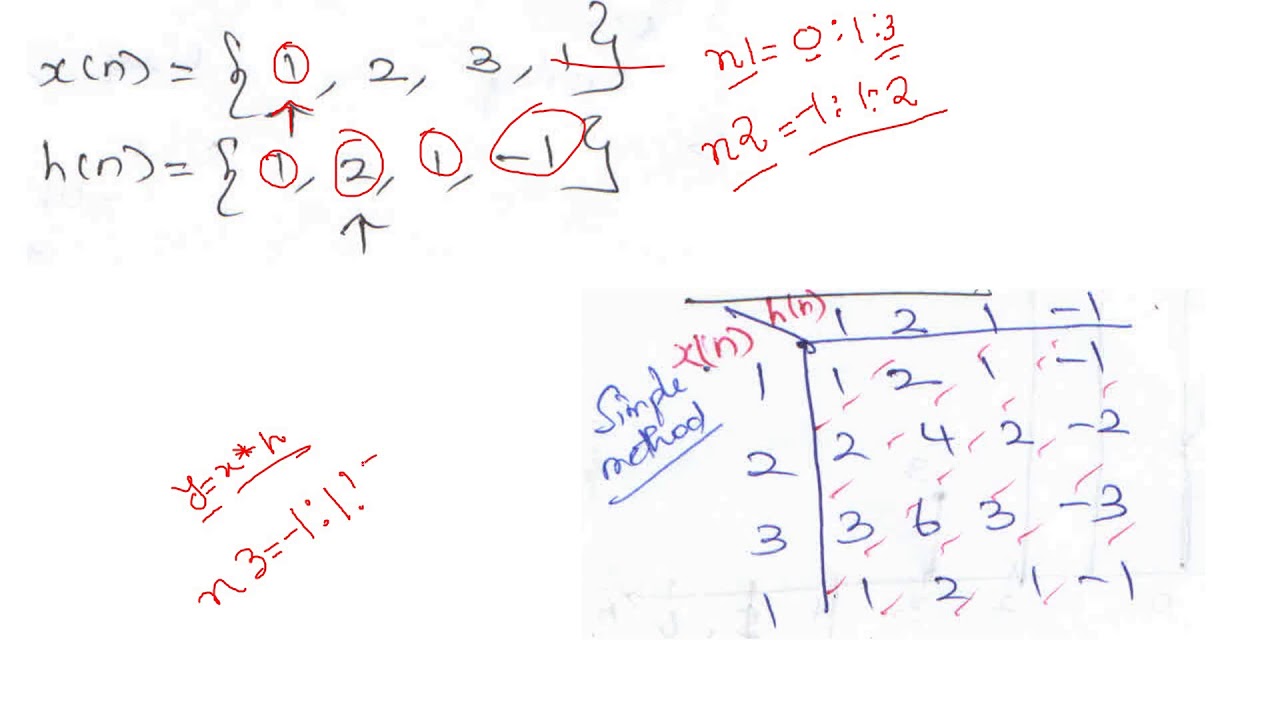 x(n) = { 1, 2, 3, 1 }
n1 = 0:1:3
h(n) = { 1, 2, 1, -1 }
n2 = -1:1:2
↑
↑
h(n) 1 2 1 -1
x(n)
1 1 2 1 -1
Simple
method
2 2 4 2 -2
3 3 6 3 -3
1 1 2 1 -1
y=x*h
n3=-1:1:-